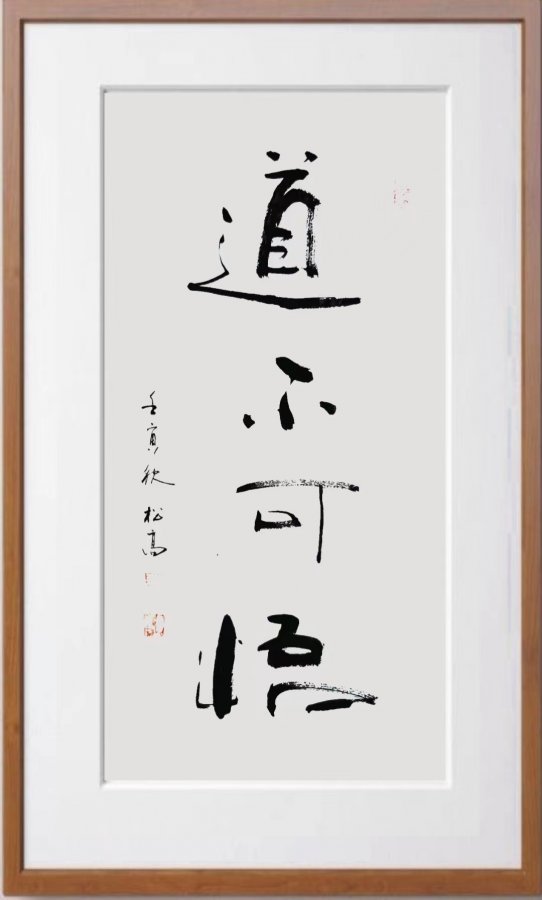 道不可悟
壬寅秋 松高